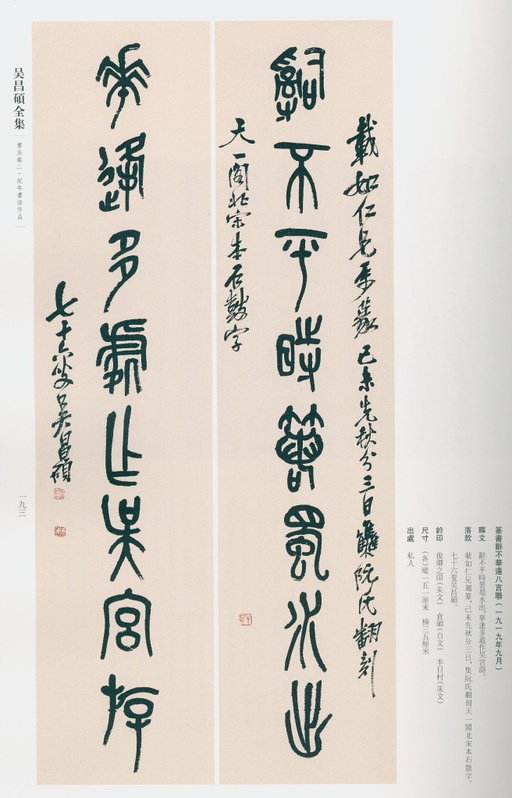 篆書辭不華逢八言聯（一九一九年九月）
釋文 辭不平時萬蜀水出，華逢多處作吴宫游。
落款 載如仁兄屬篆，己未先秋分三日，集阮氏翻刻天一閣北宋本石鼓字。
七十六叟吴昌碩。
鈐印 俊卿之印（朱文） 倉碩（白文） 半日村（朱文）
尺寸 （各）縱一五一厘米 横三五厘米
出處 私人
載如仁兄屬篆 己未先秋分三日 集阮氏翻刻
辭不平時萬蜀水出
天一閣北宋本石鼓字
華逢多處作吴宫游
七十六叟吴昌碩
吴昌碩全集
書法卷二·紀年書法作品
一九三